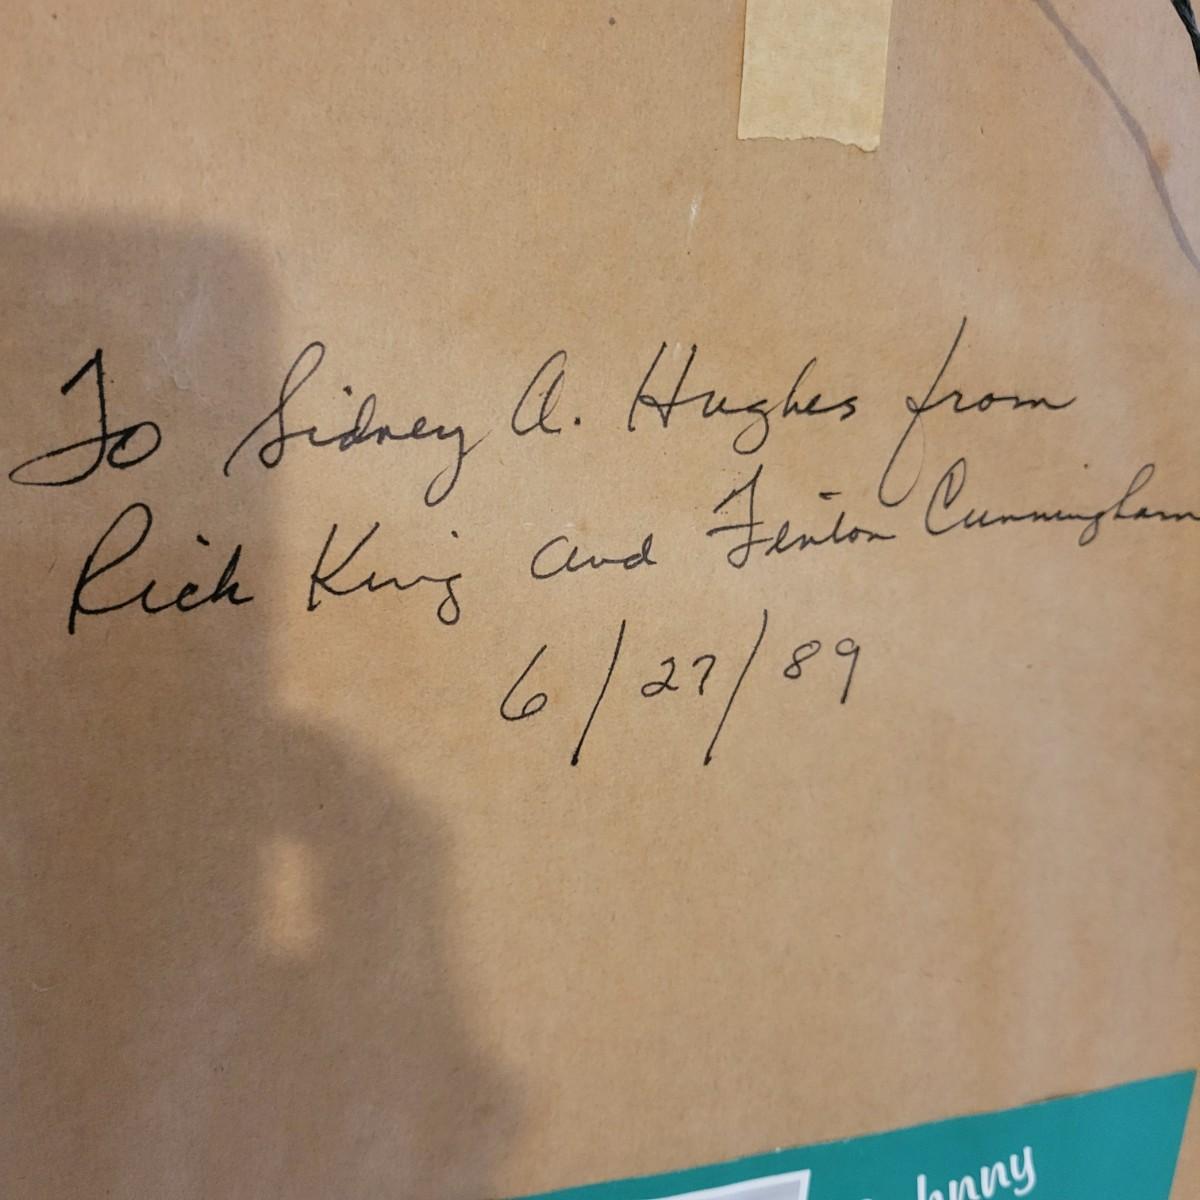 To Sidney A. Hughes from
Rick King and Fenton Cunningham
6/27/89